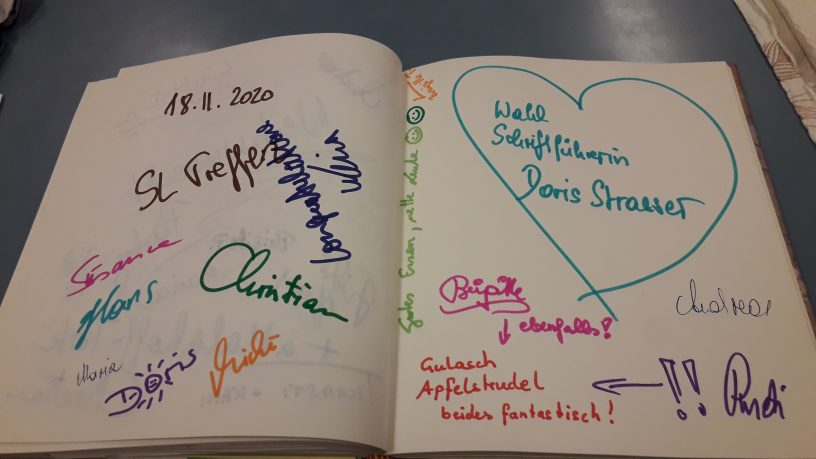 18.11.2020
SL Treffen
Susanne
Hans
Christian
Maria
Doris
Gutes Essen, nette Leute
Wahl
Schriftführerin
Doris Strasser
Brigitte
↓ ebenfalls!
Andreas
Gulasch
Apfelstrudel
beides fantastisch!
← !! Rudi